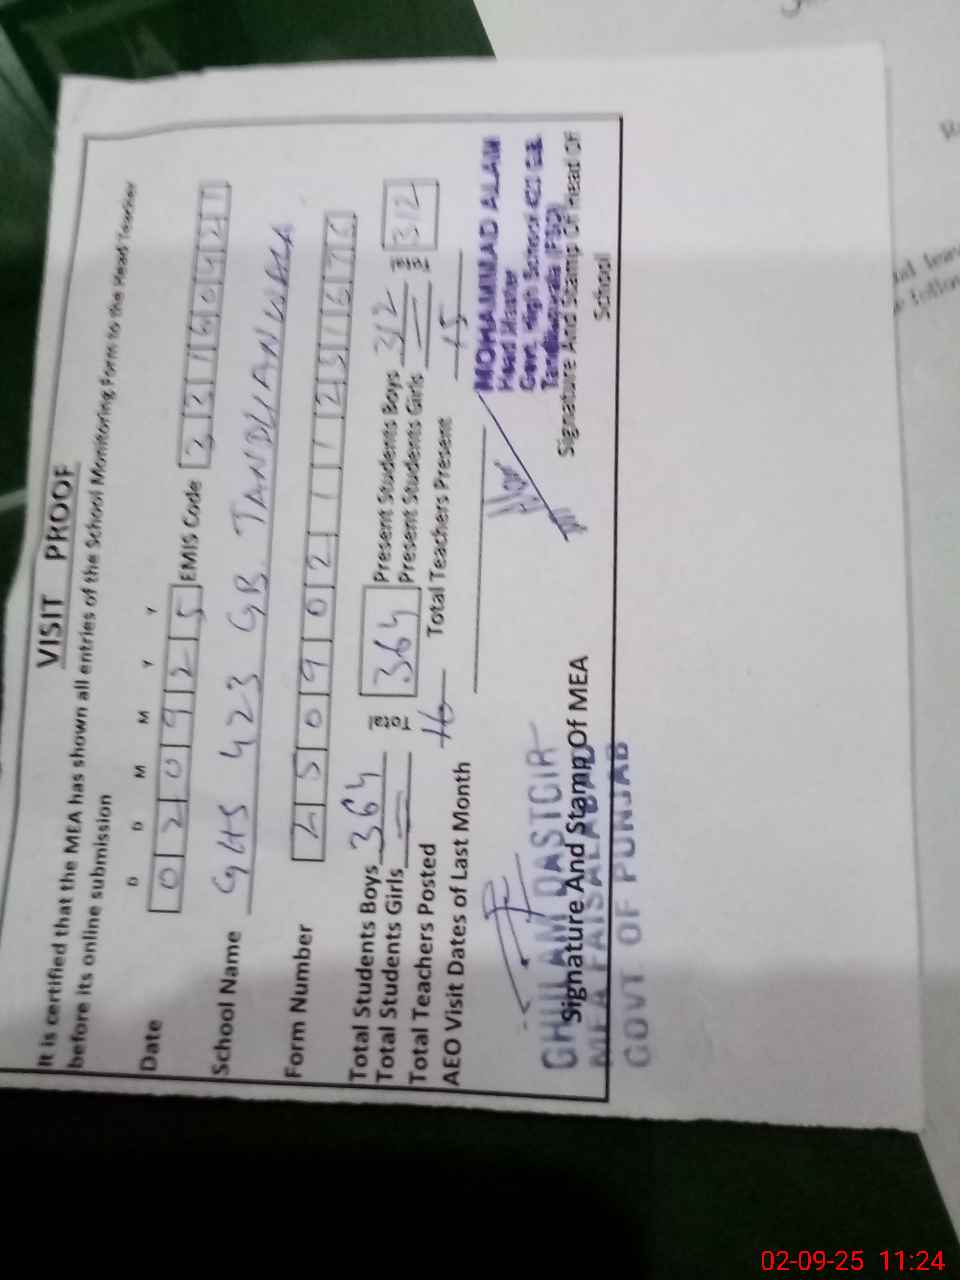 VISIT PROOF
It is certified that the MEA has shown all entries of the School Monitoring Form to the Head Teacher
before its online submission
D D M M Y Y
Date 0 2 0 9 2 5 EMIS Code 3 3 1 6 0 4 2 1
School Name GHS 423 GB TANDLIANWALA
Form Number 2 5 0 9 0 2 1 1 2 5 1 6 7 6
Total Students Boys 364 Total 364 Present Students Boys 312 Total 312
Total Students Girls — Present Students Girls —
Total Teachers Posted 16 Total Teachers Present 15
AEO Visit Dates of Last Month
MOHAMMAD ALAM
Head Master
Govt. High School 423 G.B.
Tandlianwala (FSD)
GHULAM DASTGIR
Signature And Stamp Of MEA
MEA FAISALABAD
GOVT OF PUNJAB
Signature And Stamp Of Head Of
School
02-09-25 11:24